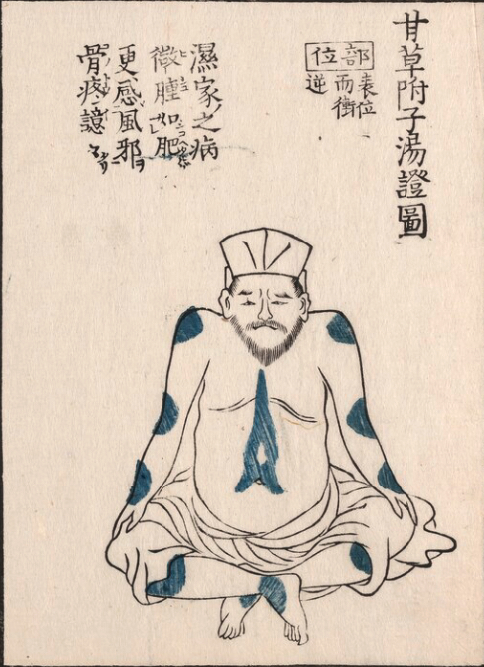 甘草附子湯證圖
部位
表位
而衝
逆
濕家之病
微腫如肥
更感風邪
骨疼